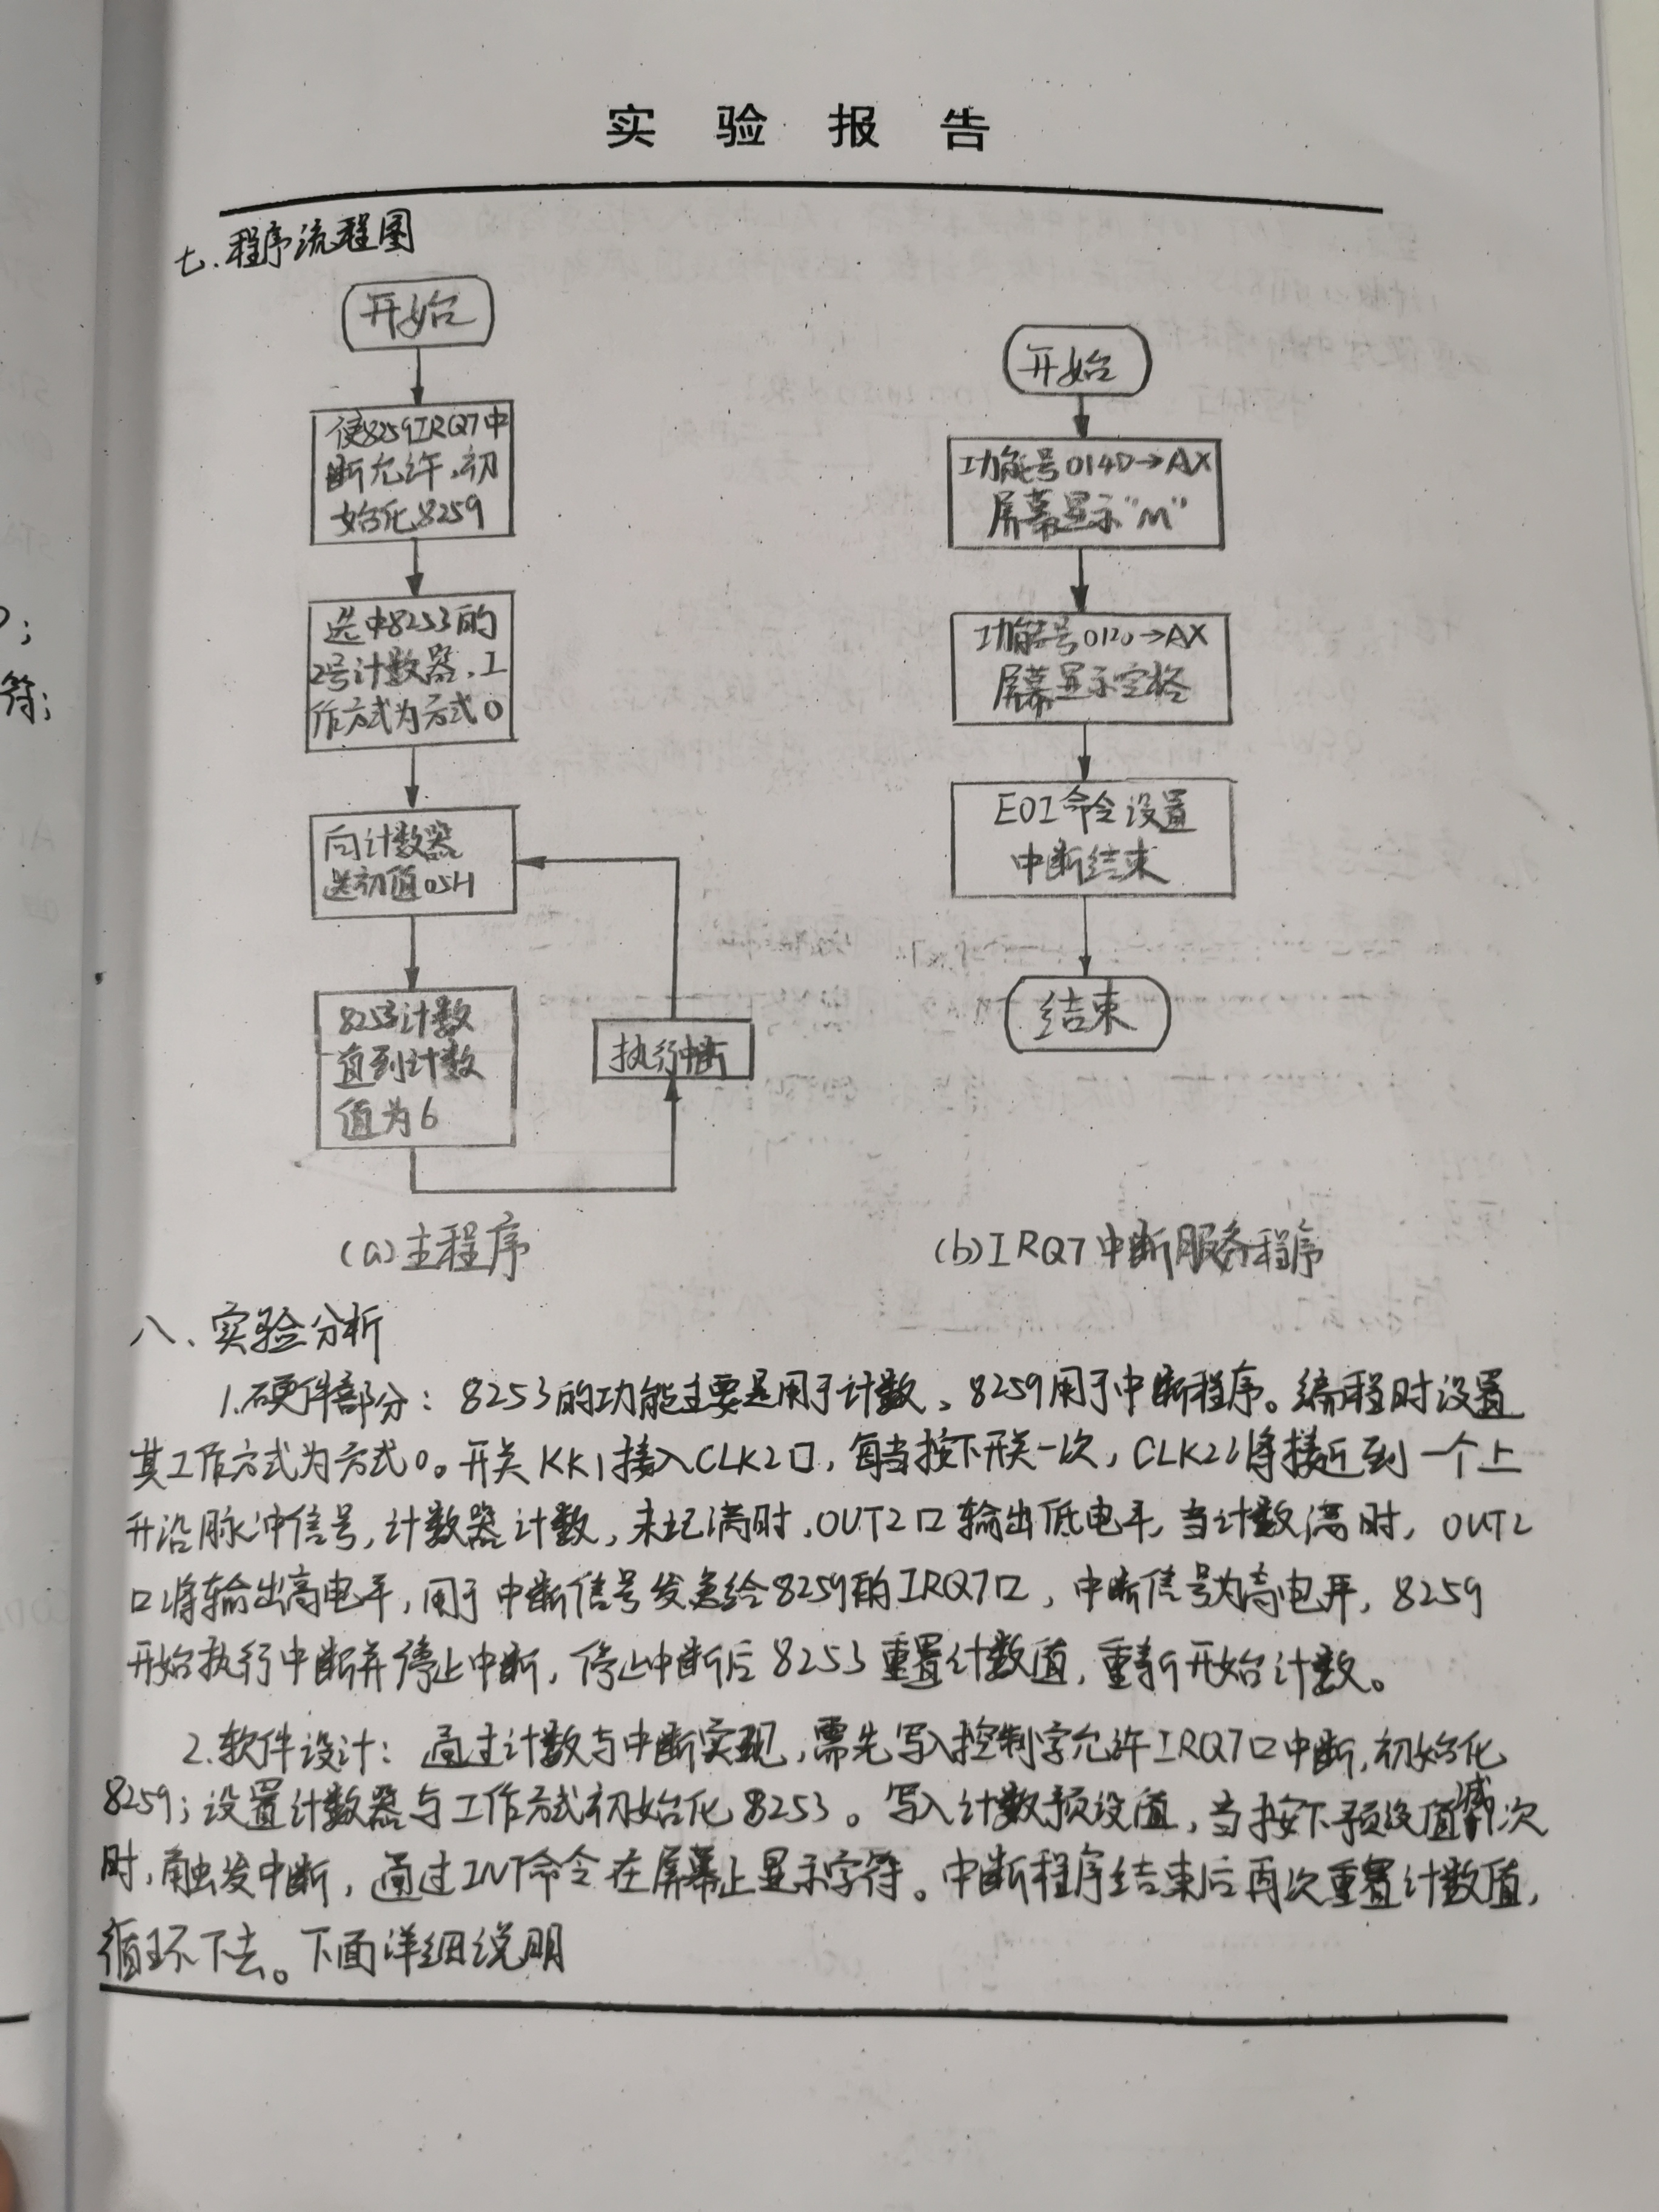 实验报告
七、程序流程图
开始
使8259IRQ7中
断允许,初
始化8259
选中8253的
2号计数器,工
作方式为方式0
向计数器
送初值05H
8253计数
直到计数
值为6
执行中断
(a)主程序
开始
功能号014D→AX
屏幕显示"M"
功能号0120→AX
屏幕显示空格
EOI命令设置
中断结束
结束
(b)IRQ7中断服务程序
八、实验分析
1.硬件部分:8253的功能主要是用于计数、8259用于中断程序。编程时设置
其工作方式为方式0。开关KK1接入CLK2口,每当按下开关一次,CLK2将接近到一个上
升沿脉冲信号,计数器计数,未记满时,OUT2口输出低电平,当计数满时,OUT2
口将输出高电平,用于中断信号发送给8259的IRQ7口,中断信号为高电平,8259
开始执行中断并停止中断,停止中断后8253重置计数值,重新开始计数。
2.软件设计:通过计数与中断实现,需先写入控制字允许IRQ7口中断,初始化
8259;设置计数器与工作方式初始化8253。写入计数预设值,当按下预设值次
时,触发中断,通过INT命令在屏幕上显示字符。中断程序结束后再次重置计数值,
循环下去。下面详细说明
符;